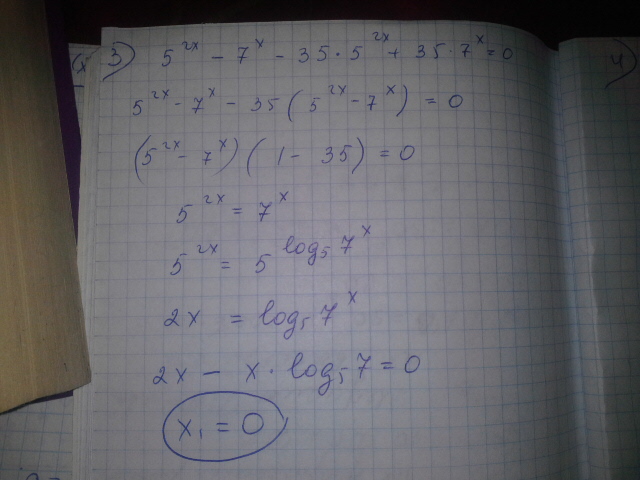 3) 5^{2x} - 7^x - 35 · 5^{2x} + 35 · 7^x = 0
5^{2x} - 7^x - 35 ( 5^{2x} - 7^x ) = 0
(5^{2x} - 7^x) ( 1 - 35) = 0
5^{2x} = 7^x
5^{2x} = 5^{log_5 7^x}
2x = log_5 7^x
2x - x · log_5 7 = 0
x_1 = 0
4)